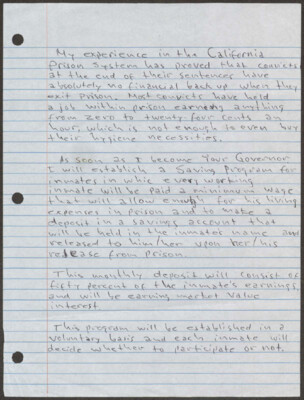 My experience in the California
Prison System has proved that convicts
at the end of their sentences have
absolutely no financial back up when they
exit prison. Most convicts have held
a job within prison earning anything
from zero to twenty-four cents an
hour, which is not enough to even buy
their hygiene necessities.
As soon as I become Your Governor
I will establish a Saving Program for
inmates in which every working
inmate will be paid a minimum wage
that will allow enough for his living
expenses in prison and to make a
deposit in a savings account that
will be held in the inmate's name and
released to him/her upon her/his
release from prison
This monthly deposit will consist of
fifty percent of the inmate's earnings,
and will be earning market value
interest.
This program will be established in a
voluntary basis and each inmate will
decide whether to participate or not.